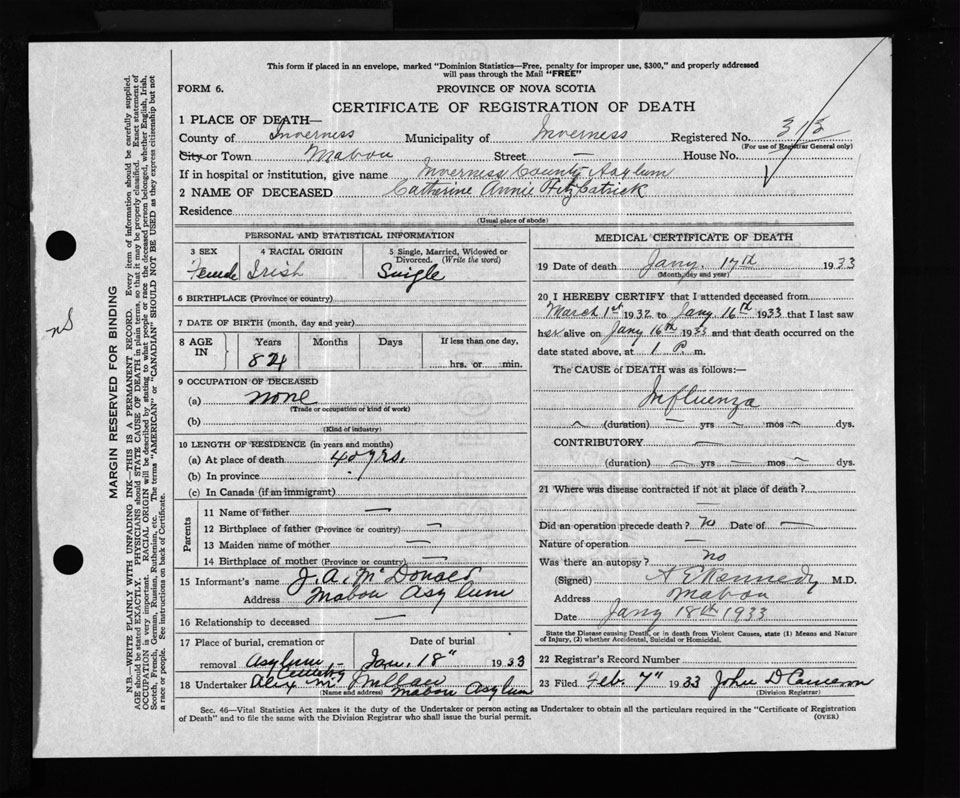 This form if placed in an envelope, marked "Dominion Statistics—Free, penalty for improper use, $300," and properly addressed
will pass through the Mail "FREE"
FORM 6.
PROVINCE OF NOVA SCOTIA
CERTIFICATE OF REGISTRATION OF DEATH
1 PLACE OF DEATH—
County of Inverness Municipality of Inverness Registered No. 313
(For use of Registrar General only)
City or Town Mabou Street — House No.
If in hospital or institution, give name Inverness County Asylum
2 NAME OF DECEASED Catherine Annie FitzPatrick
Residence
(Usual place of abode)
PERSONAL AND STATISTICAL INFORMATION
3 SEX Female
4 RACIAL ORIGIN Irish
5 Single, Married, Widowed or Divorced. (Write the word) Single
6 BIRTHPLACE (Province or country)
7 DATE OF BIRTH (month, day and year)
8 AGE IN Years Months Days If less than one day,
84 hrs. or min.
9 OCCUPATION OF DECEASED
(a) none
(Trade or occupation or kind of work)
(b)
(Kind of industry)
10 LENGTH OF RESIDENCE (in years and months)
(a) At place of death 40 yrs.
(b) In province
(c) In Canada (if an immigrant)
Parents
11 Name of father —
12 Birthplace of father (Province or country) —
13 Maiden name of mother —
14 Birthplace of mother (Province or country) —
15 Informant's name J. A. McDonald
Address Mabou Asylum
16 Relationship to deceased —
17 Place of burial, cremation or removal Asylum Cemetery Date of burial Jan. 18" 1933
18 Undertaker Alex
(Name and address) Mabou Asylum
MEDICAL CERTIFICATE OF DEATH
19 Date of death Jany. 17th 1933
(Month, day and year)
20 I HEREBY CERTIFY that I attended deceased from
March 1st 1932 to Jany 16th 1933 that I last saw
her alive on Jany 16th 1933 and that death occurred on the
date stated above, at 1 P. m.
The CAUSE of DEATH was as follows:—
Influenza
(duration) — yrs — mos — dys.
CONTRIBUTORY —
(duration) — yrs — mos — dys.
21 Where was disease contracted if not at place of death?
—
Did an operation precede death? No Date of —
Nature of operation —
Was there an autopsy? no
(Signed) A E Kennedy M.D.
Address Mabou
Date Jany 18th 1933
State the Disease causing Death, or in death from Violent Causes, state (1) Means and Nature
of Injury, (2) whether Accidental, Suicidal or Homicidal.
22 Registrar's Record Number
23 Filed Feb. 7" 1933 John D Cameron
(Division Registrar)
Sec. 46—Vital Statistics Act makes it the duty of the Undertaker or person acting as Undertaker to obtain all the particulars required in the "Certificate of Registration
of Death" and to file the same with the Division Registrar who shall issue the burial permit.
(OVER)
MARGIN RESERVED FOR BINDING
N.B.—WRITE PLAINLY WITH UNFADING INK—THIS IS A PERMANENT RECORD. Every item of information should be carefully supplied.
AGE should be stated EXACTLY. PHYSICIANS should STATE CAUSE OF DEATH in plain terms, so that it may be properly classified. Exact statement of
OCCUPATION is very important. RACIAL ORIGIN will be described by stating to what people or race the deceased person belonged, whether English, Irish,
Scotch, French, German, Russian, Ruthenian, etc. The terms "AMERICAN" or "CANADIAN" SHOULD NOT BE USED as they express citizenship but not
a race or people. See instructions on back of Certificate.
nS